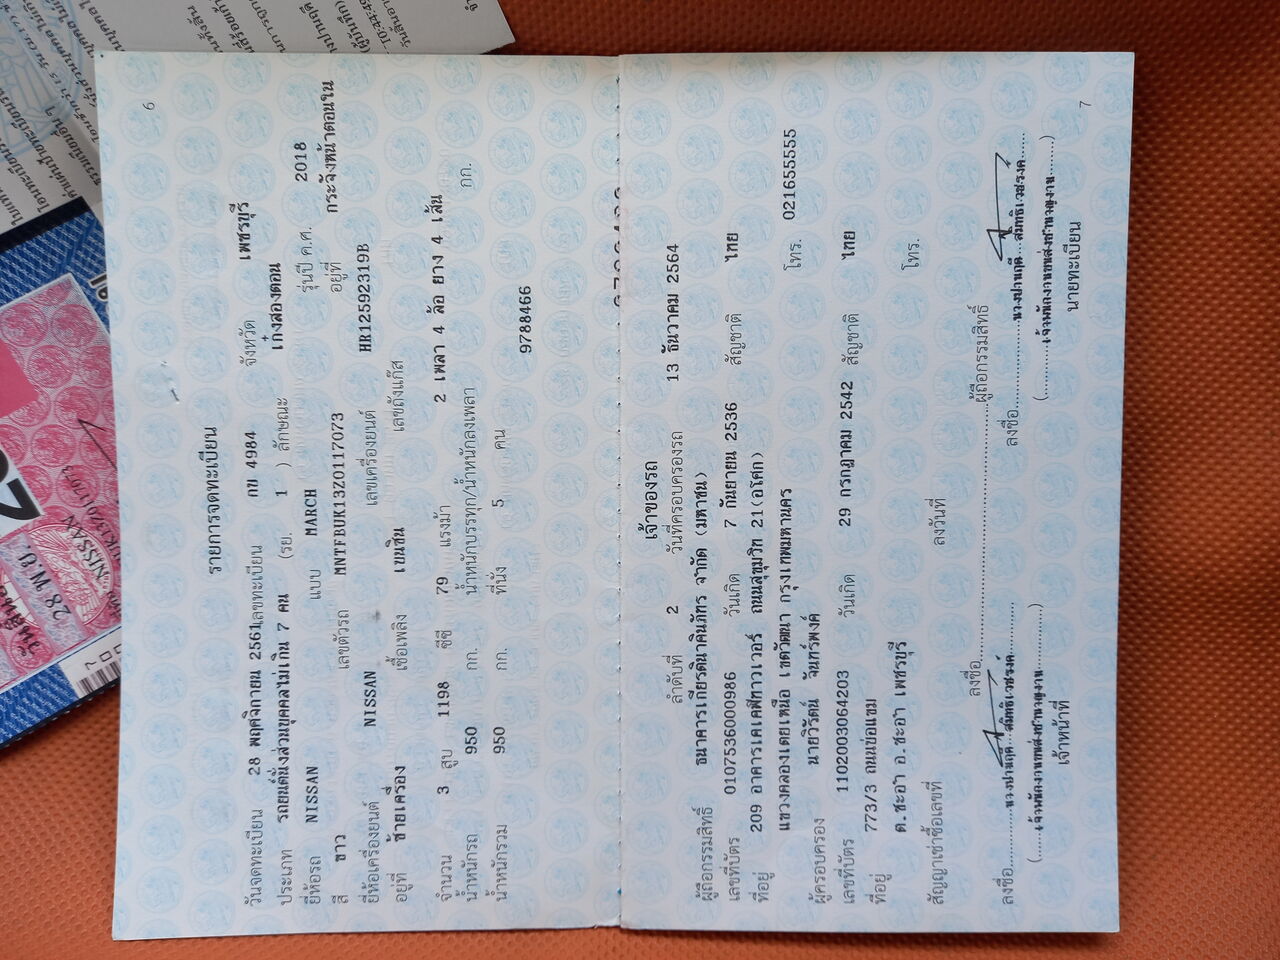 6
รายการจดทะเบียน
วันจดทะเบียน 28 พฤศจิกายน 2561 เลขทะเบียน กข 4984 จังหวัด เพชรบุรี
ประเภท รถยนต์นั่งส่วนบุคคลไม่เกิน 7 คน (รย. 1 ) ลักษณะ เก๋งสองตอน
ยี่ห้อรถ NISSAN แบบ MARCH รุ่นปี ค.ศ. 2018
สี ขาว เลขตัวรถ MNTFBUK13Z0117073 อยู่ที่ กระจังหน้าตอนใน
ยี่ห้อเครื่องยนต์ NISSAN เลขเครื่องยนต์ HR12592319B
อยู่ที่ ซ้ายเครื่อง เชื้อเพลิง เบนซิน เลขถังแก๊ส
จำนวน 3 สูบ 1198 ซีซี 79 แรงม้า 2 เพลา 4 ล้อ ยาง 4 เส้น
น้ำหนักรถ 950 กก. น้ำหนักบรรทุก/น้ำหนักลงเพลา กก.
น้ำหนักรวม 950 กก. ที่นั่ง 5 คน
9788466
เจ้าของรถ
ลำดับที่ 2 วันที่ครอบครองรถ 13 ธันวาคม 2564
ผู้ถือกรรมสิทธิ์ ธนาคารเกียรตินาคินภัทร จำกัด (มหาชน)
เลขที่บัตร 0107536000986 วันเกิด 7 กันยายน 2536 สัญชาติ ไทย
ที่อยู่ 209 อาคารเคเคพีทาวเวอร์ ถนนสุขุมวิท 21(อโศก)
แขวงคลองเตยเหนือ เขตวัฒนา กรุงเทพมหานคร โทร. 021655555
ผู้ครอบครอง นายวิรัตน์ จันทร์พงค์
เลขที่บัตร 1102003064203 วันเกิด 29 กรกฎาคม 2542 สัญชาติ ไทย
ที่อยู่ 773/3 ถนนข่อยแขม
ต.ชะอำ อ.ชะอำ เพชรบุรี โทร.
สัญญาเช่าซื้อเลขที่ ลงวันที่
ลงชื่อ ผู้ถือกรรมสิทธิ์
ลงชื่อ ลงชื่อ
เจ้าหน้าที่ นายทะเบียน
7
NISSAN